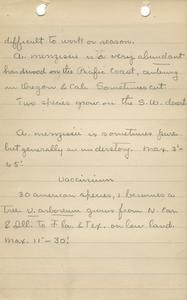 difficult to work or season.
A. menziesii is a very abundant
hardwood on the Pacific Coast, centering
in Oregon & Cal. Sometimes cut.
Two species grow on the S.W. desert
A. menziesii is sometimes pure
but generally an understory. Max. 3'-
65'
Vaccinium
30 american species, 1 becomes a
tree V. arboreum grows from N. Car
& Ill. to Fla & Tex. on low land.
Max. 11"-30'